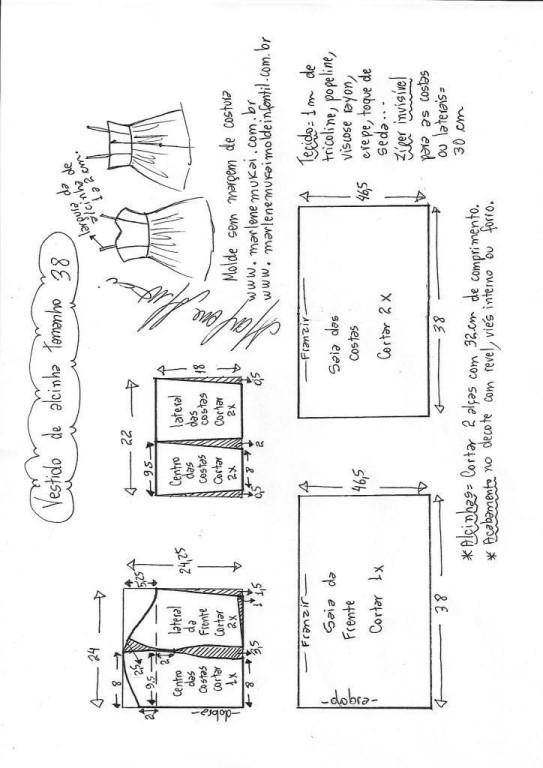 Vestido de alcinha tamanho 38
largura da
alcinha de
1 a 2 cm.
Molde sem margem de costura
www.marlenemukai.com.br
www.marlenemukaimoldeinfantil.com.br
24
8
5,25
2
2,5
9,5
2
24,25
Centro
das
costas
Cortar
1x
lateral
da
Frente
Cortar
2x
-dobra-
8
3,5
1
1,5
22
9,5
18
Centro
das
costas
Cortar
2x
lateral
das
costas
Cortar
2x
0,5
8
2
0,5
Franzir
Saia da
Frente
Cortar 1x
-dobra-
46,5
38
Franzir
Saia das
Costas
Cortar 2x
46,5
38
Tecido = 1 m de
tricoline, popeline,
viscose rayon,
crepe, toque de
seda...
Zíper invisível
para as costas
ou laterais=
30 cm
*Alcinhas= Cortar 2 alças com 32cm de comprimento.
* Acabamento no decote com revel, viés interno ou forro.